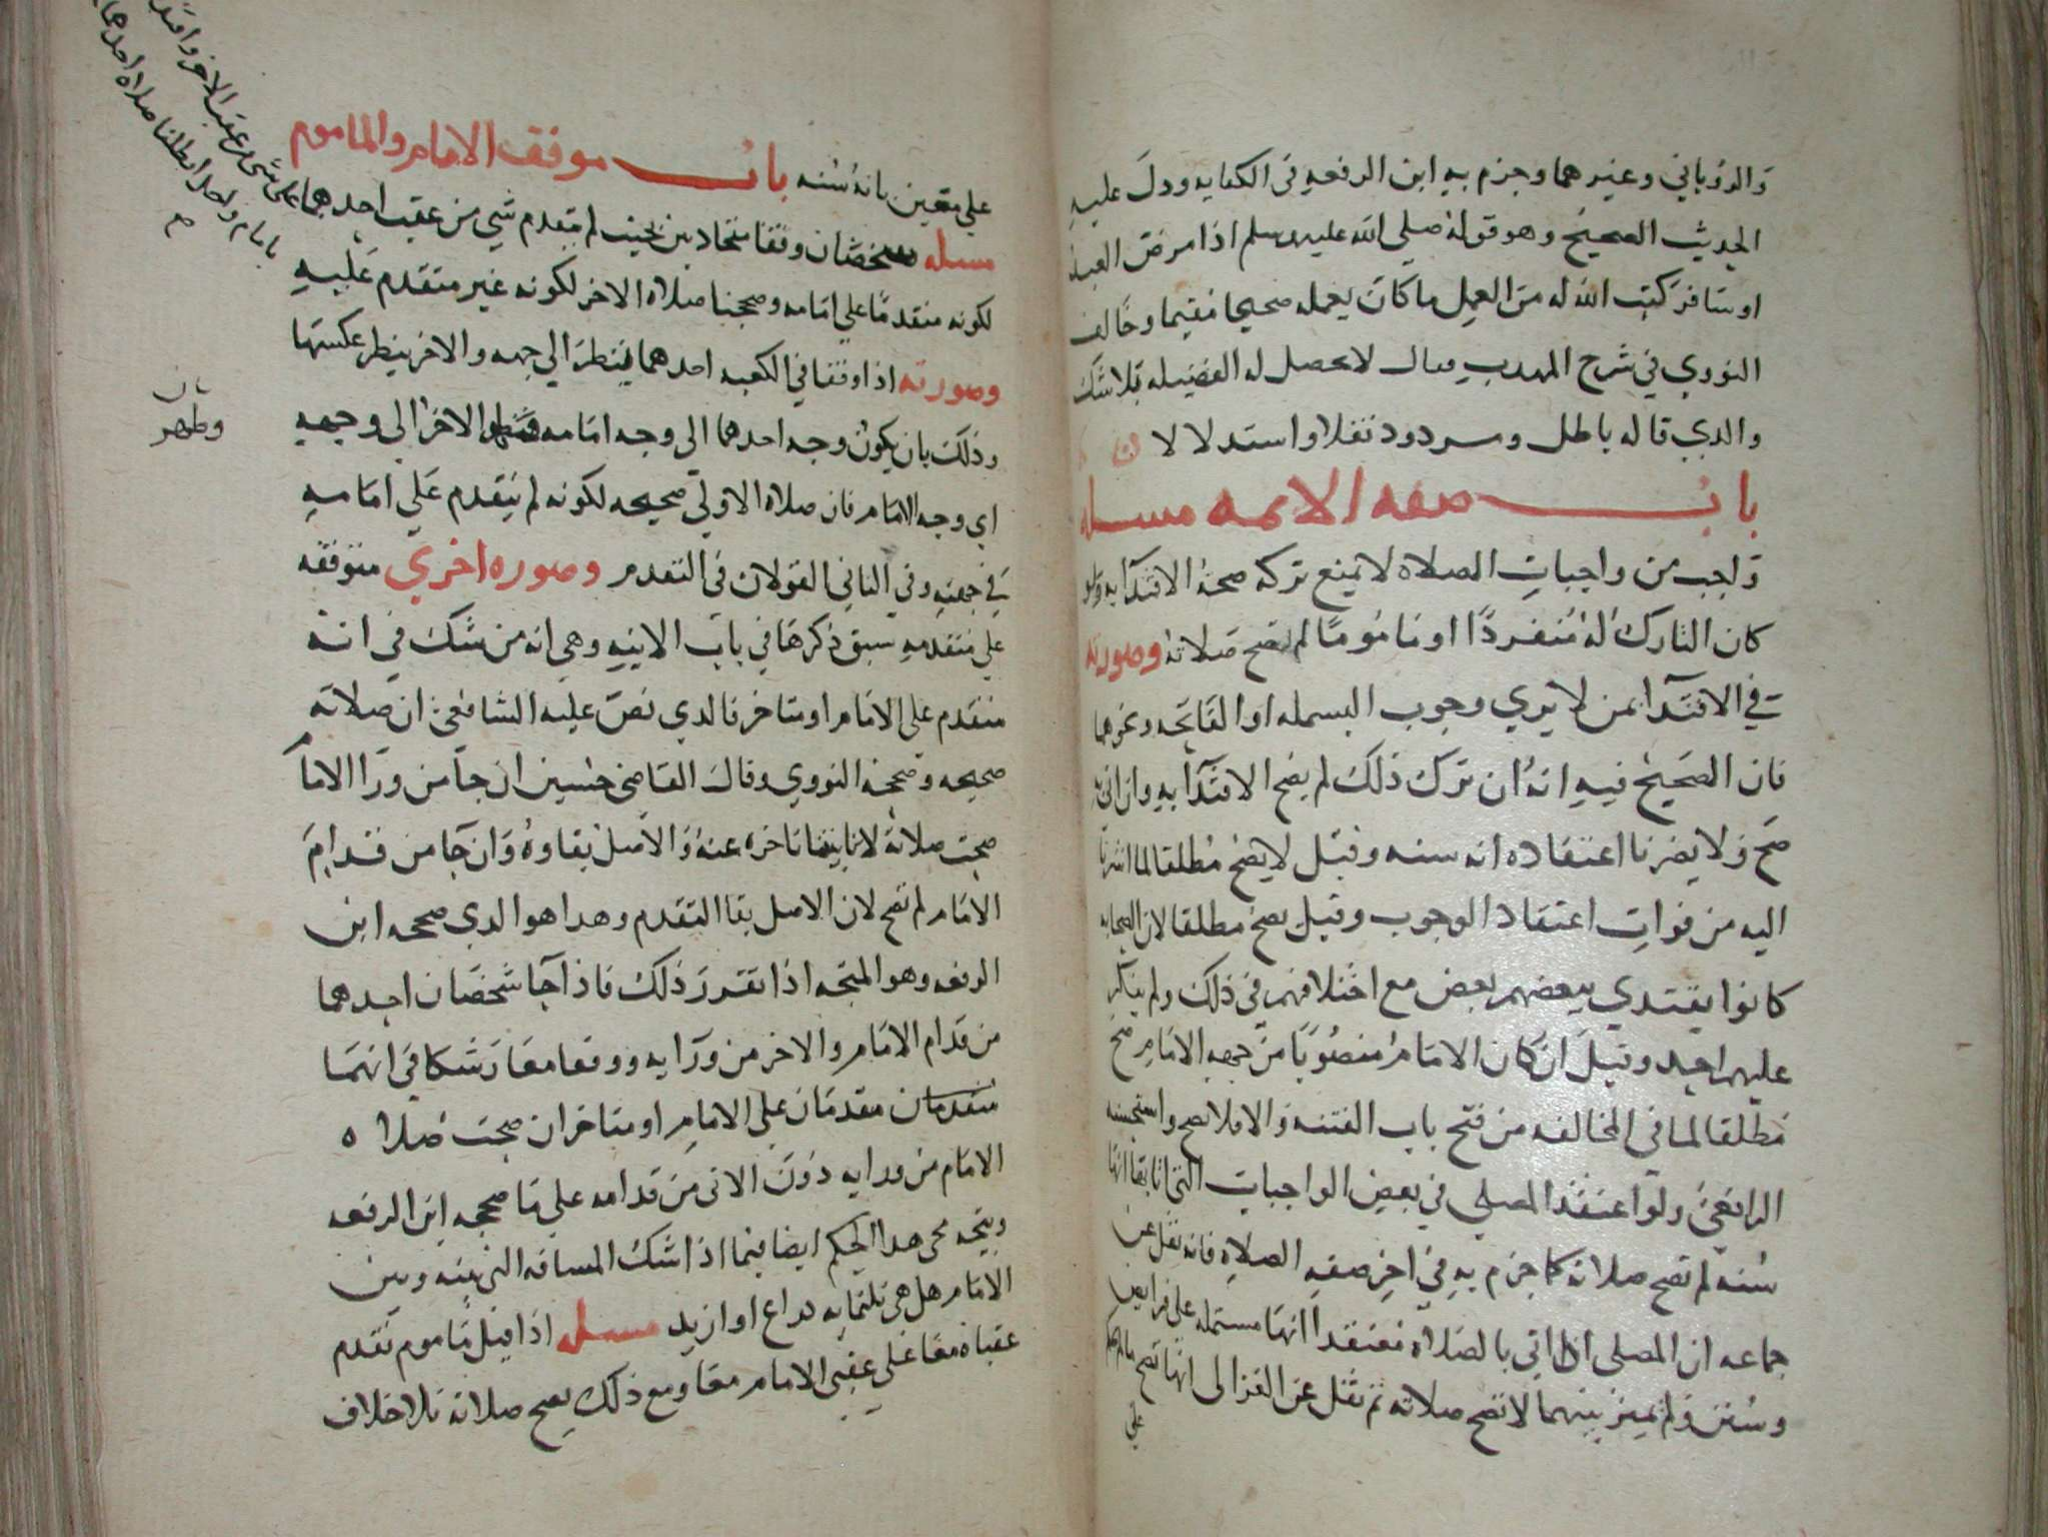 والروياني وغيرهما وجزم به ابن الرفعه في الكفايه ودل عليه
الحديث الصحيح وهو قوله صلى الله عليه وسلم اذا مرض العبد
او سافر كتب الله له من العمل ما كان يعمله صحيحا مقيما وخالف
النووي في شرح المهدب فقال لا يحصل له الفضيله بلا شك
والدي قاله باطل ومردود نقلا واستدلالا
باب صفه الايمه مسله
واجب من واجبات الصلاه لا يمنع تركه صحة الاقتدآ به ولو
كان التارك له منفردًا او مامومًا لم تصح صلاته وصورته
في الاقتدآ بمن لا يري وجوب البسمله او الفاتحه ونحوهما
فان الصحيح فيه انه ان ترك ذلك لم يصح الاقتدآ به وان اتي به
صح ولا يضرنا اعتقاده انه سنه وقيل لا يصح مطلقا لما اشرنا
اليه من فوات اعتقاد الوجوب وقيل يصح مطلقا لان الصحابه
كانوا يقتدي بعضهم ببعض مع اختلافهم في ذلك ولم ينكر
عليهم احد وقيل ان كان الامام منصوبا من جهه الامام صح
مطلقا لما في المخالفه من فتح باب الفتنه والا فلا يصح واستحسنه
الرافعي ولو اعتقد المصلي في بعض الواجبات التي اتا بها انها
سنه لم تصح صلاته كما جزم به في اخر صفه الصلاه فانه نقل عن
جماعه ان المصلي اذا اتي بالصلاه معتقدا انها مشتمله على فرايض
وسنن ولم يميز بينهما لا تصح صلاته ثم نقل عن الغزالى انها تصح
علي
علي معين بانه سنه باب موقف الامام والماموم
مسله شخصان وقفا متحاديين بحيث لم يتقدم شي من عقب احدهما على شي من عقب الاخر
بامام واحد ابطلنا صلاة احدهما
صح
لكونه متقدمًا علي امامه وصححنا صلاه الاخر لكونه غير متقدم عليه
وصورته اذا وقفا في الكعبه احدهما ينظر الي جهه والاخر ينظر عكسها
وذلك بان يكون وجه احدهما الى وجه امامه الاخر الى وجهه
وظهر
اي وجه الامام فان صلاه الاولي صحيحه لكونه لم يتقدم علي امامه
في جهته وفي الثاني القولان في التقدم وصوره اخري متوقفه
علي متقدمه سبق ذكرها في باب الانيه وهي انه من شك في انه
متقدم على الامام او متاخر فالدي نص عليه الشافعي ان صلاته
صحيحه وصححه النووي وقال القاضي حسين ان جا من ورا الاما
صحت صلاته لانا تاخره عنه والاصل بقاوه وان جا من قدام
الامام لم تصح لان الاصل بقا التقدم وهدا هو الدي صححه ابن
الرفعه وهو المتجه اذا تقرر ذلك فاذا جآ شخصان احدهما
من قدام الامام والاخر من ورايه ووقفا معا وشكا في انهما
متقدمان علي الامام او متاخران صحت صلاه
الامام من ورايه دون الاتى من قدامه علي ما صححه ابن الرفعه
ويتجه مجى هدا الحكم ايضا فيما اذا شك المسافه التي بينه وبين
الامام هل هي ثلثمايه دراع او ازيد مسله اذا قيل ماموم تقدم
عقباه معا علي عقبى الامام معا ومع ذلك يصح صلاته بلا خلاف